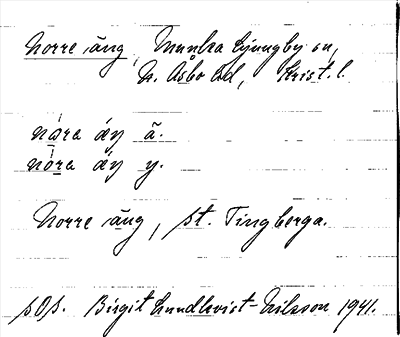 Norre äng, Munka Ljungby sn,
N. Åsbo hd, Krist. l.
nára áŋ ä.
nòra áŋ y.
Norre äng, st. Tingberga.
pOp. Birgit Lundkvist-Nilsson 1941.